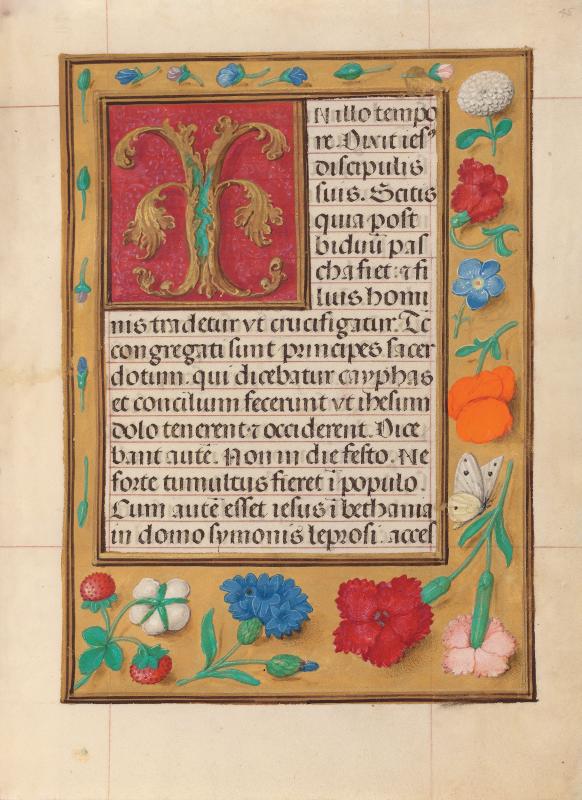 45
I Nillo tempo
re. Dixit ies⁹
discipulis
suis. Scitis
quia post
biduū pas
cha fiet ⁊ fi
luis homi
nis tradetur vt crucifigatur. Tc̄
congregati sunt principes sacer
dotum. qui dicebatur cayphas
et concilium fecerunt vt ihesum
dolo tenerent ⁊ occiderent. Dice
bant autē. Non in die festo. Ne
forte tumultus fieret ī populo
Cum autē esset iesus ī bethania
in domo symonis leprosi. acces